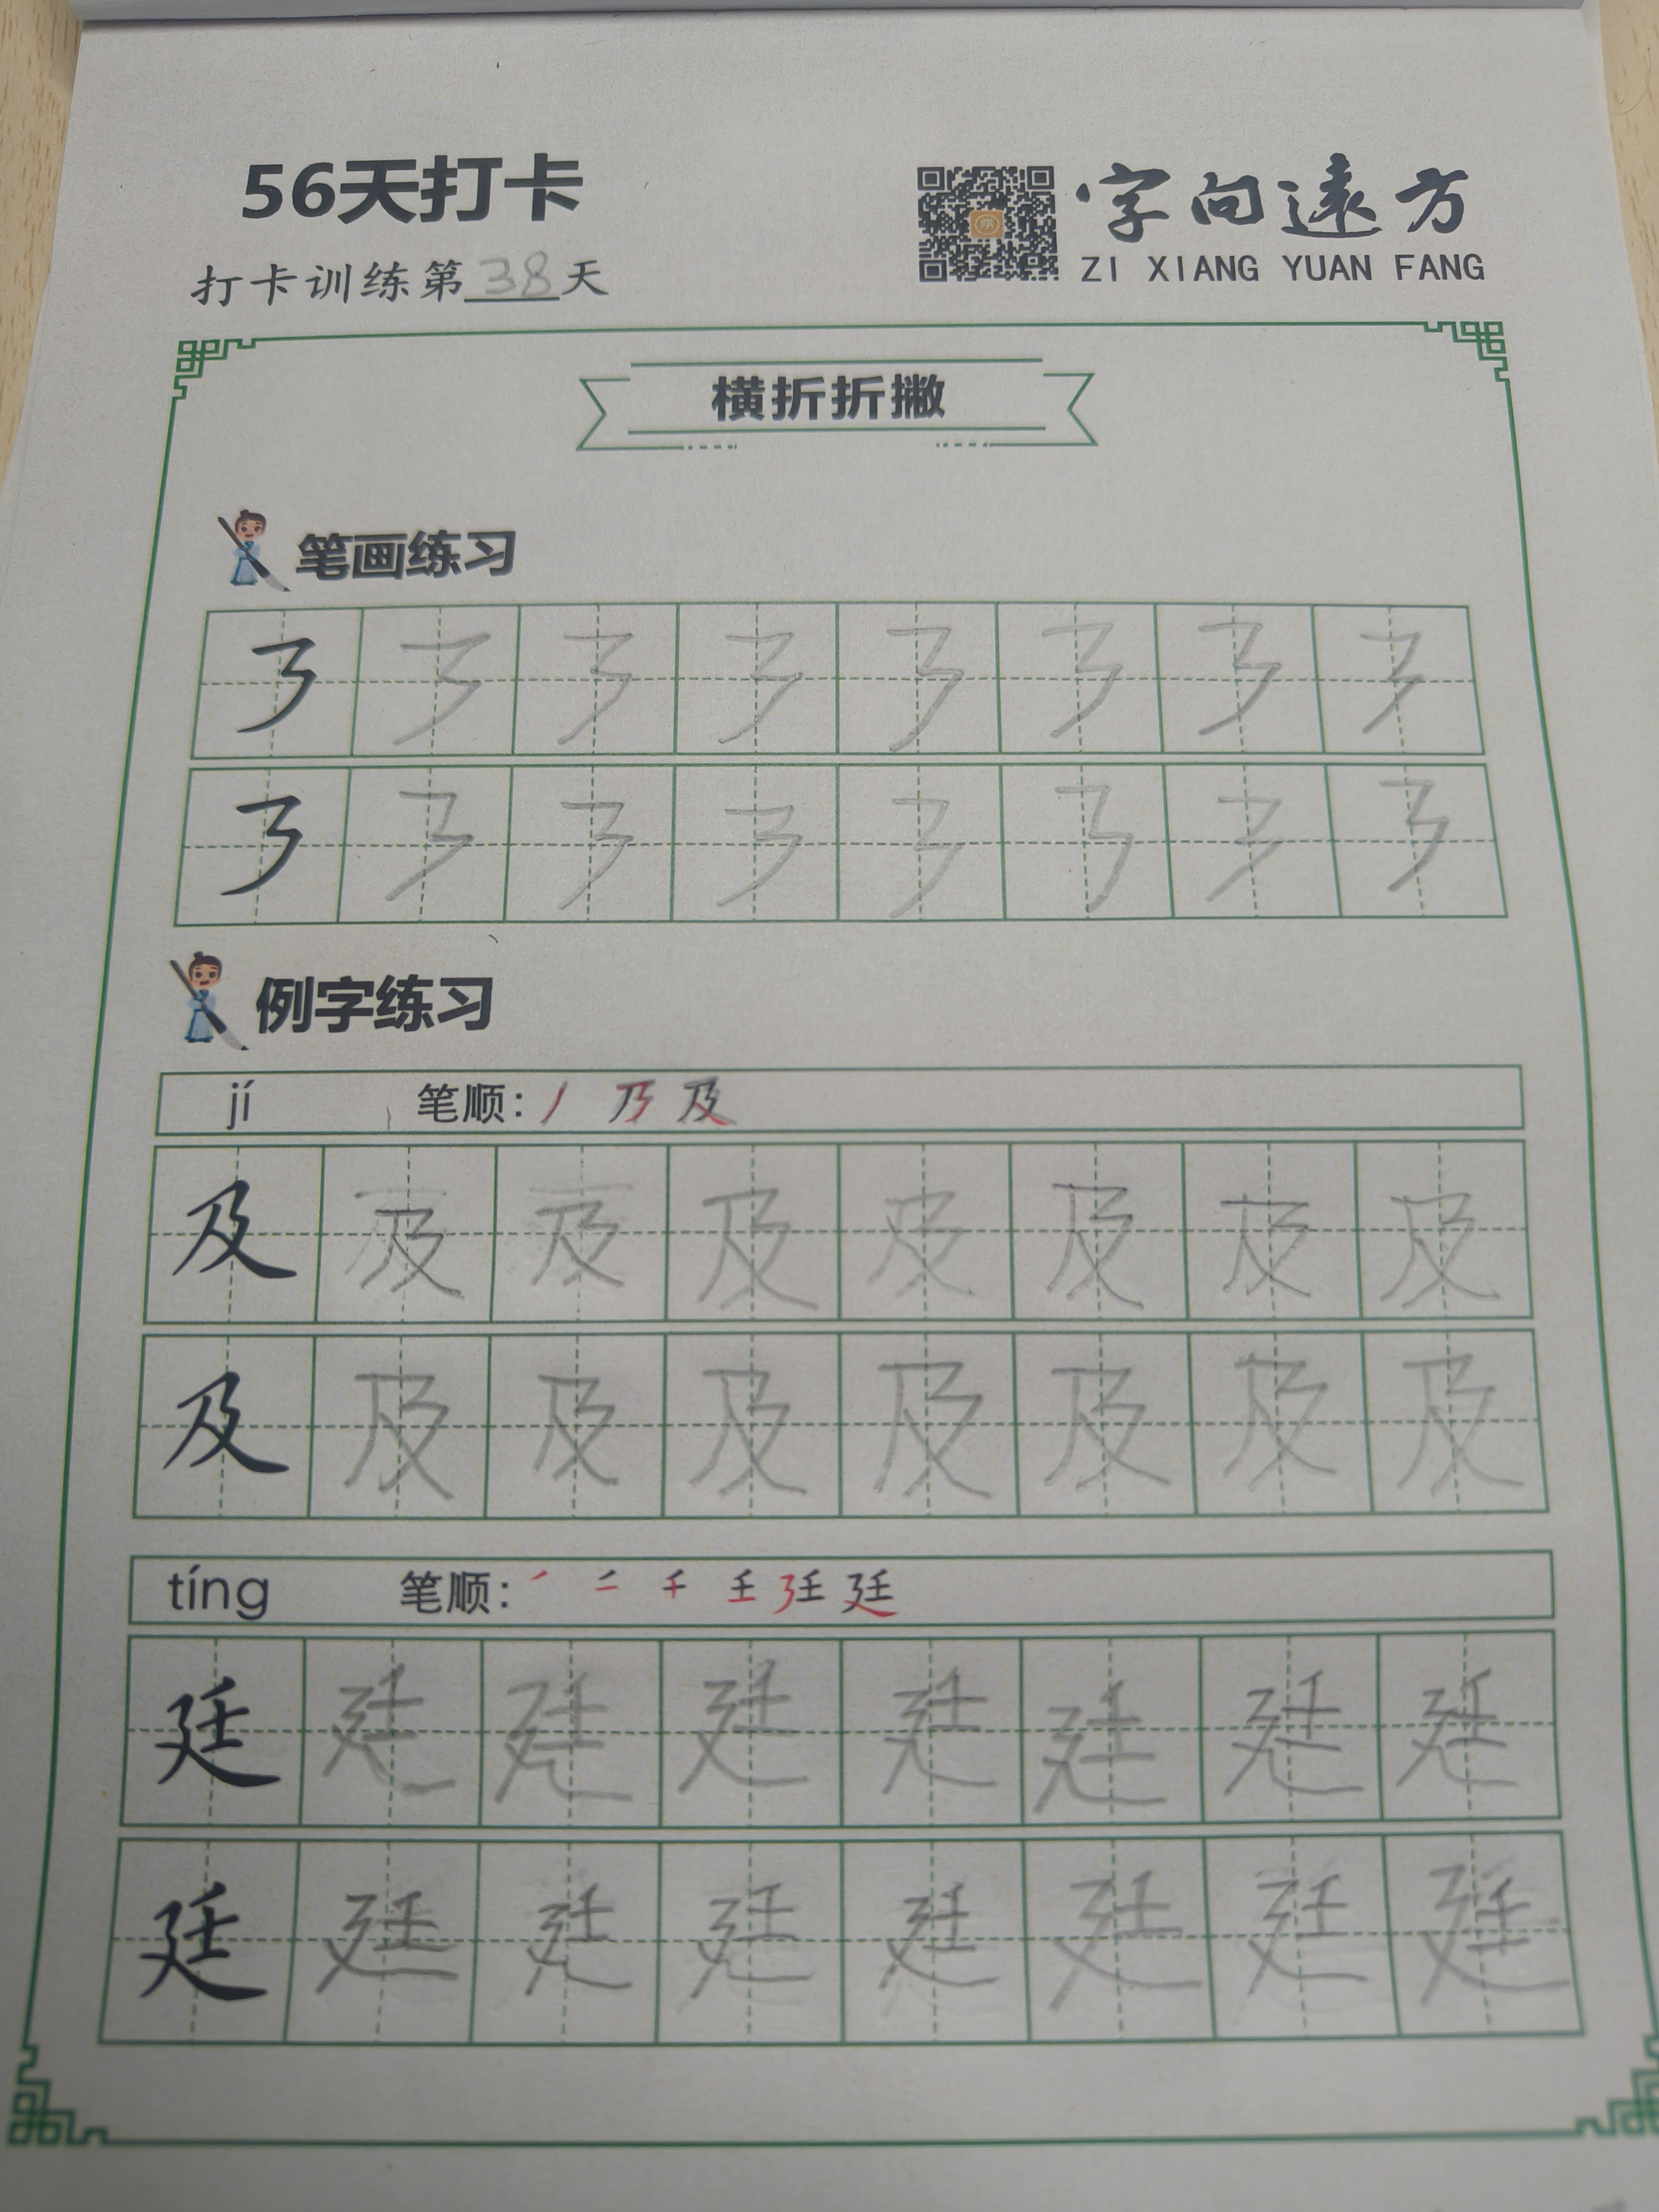 56天打卡
字向遠方
ZI XIANG YUAN FANG
打卡训练第38天
横折折撇
笔画练习
㇋ ㇋ ㇋ ㇋ ㇋ ㇋ ㇋ ㇋
㇋ ㇋ ㇋ ㇋ ㇋ ㇋ ㇋ ㇋
例字练习
jí 笔顺：丿 乃 及
及 及 及 及 及 及 及 及
及 及 及 及 及 及 及 及
tíng 笔顺：
廷 廷 廷 廷 廷 廷 廷 廷
廷 廷 廷 廷 廷 廷 廷 廷